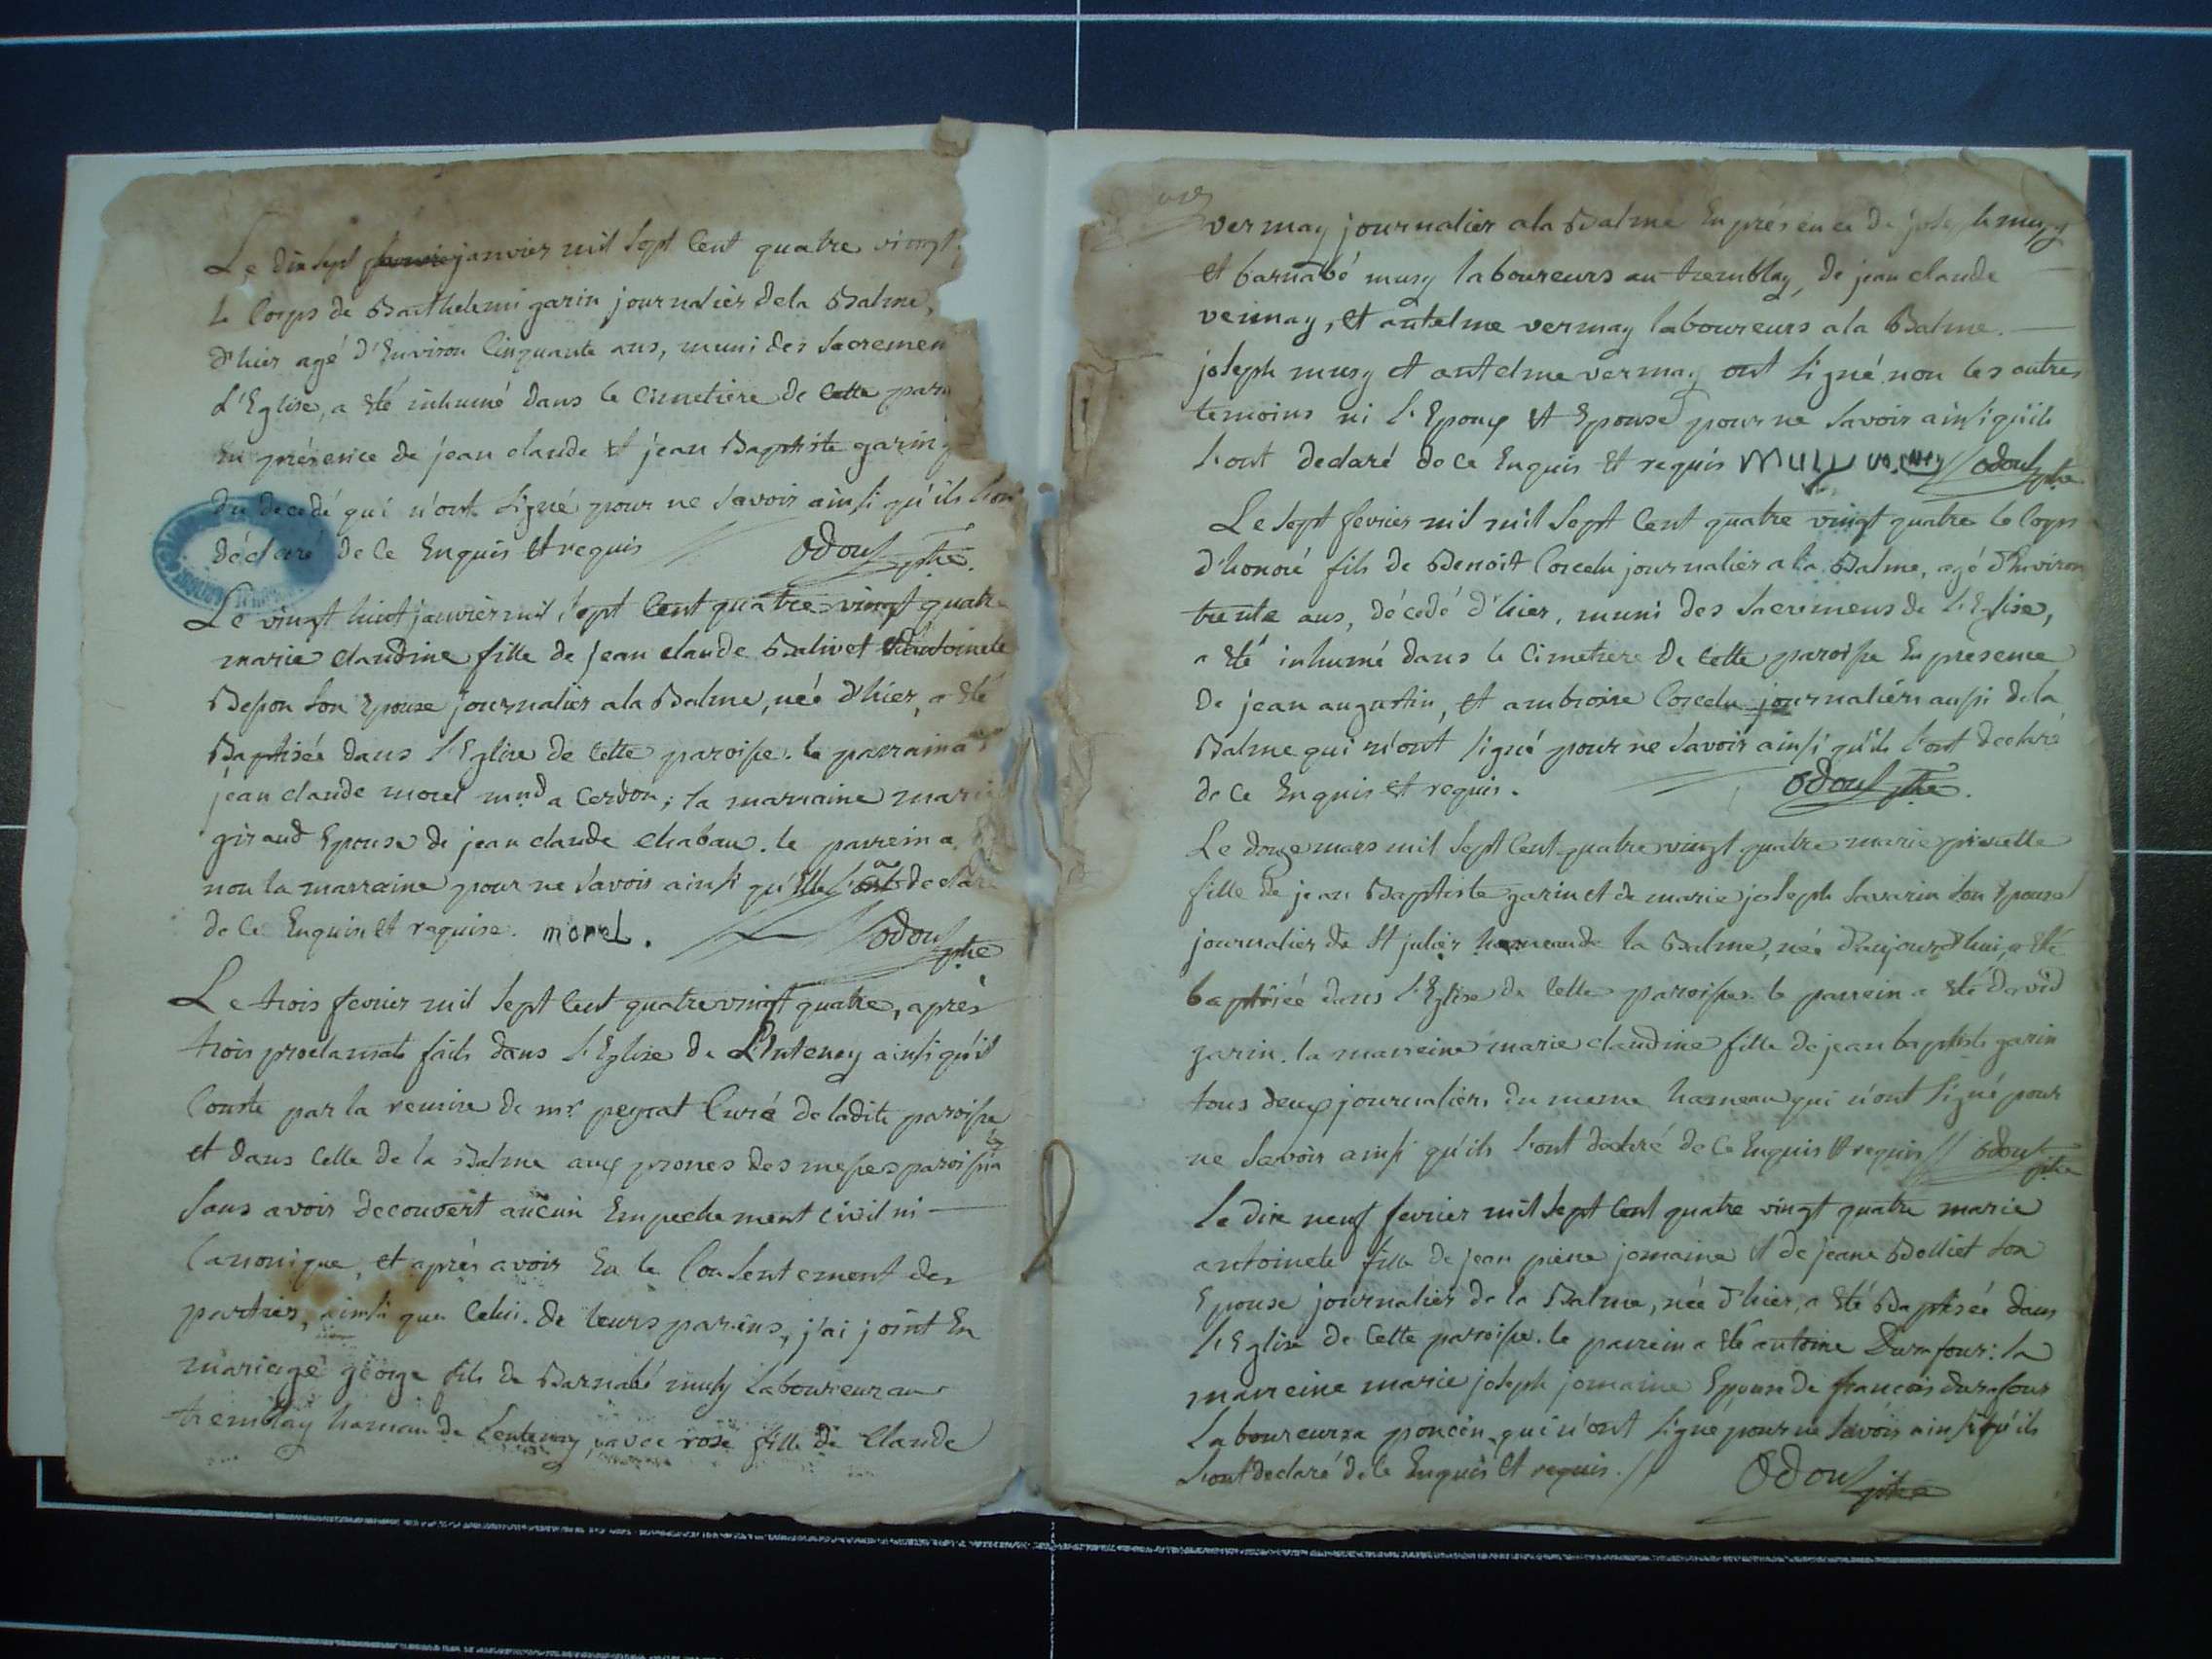 Le dix sept janvier mil sept Cent quatre vingt
le Corps de Barthelemi garin journalier dela Balme,
d'hier agé d'Environ Cinquante ans, muni des Sacremen
d'Eglise, a Eté inhumé dans le Cimetiere de Cette paro
En présence de jean claude et jean Baptiste garin
du decedé qui n'ont signé pour ne savoir ainsi qu'ils l'on
déclaré de Ce Enquis et requis Odouf ptre.
Le vingt huit janvier mil sept Cent quatre vingt quatre
marie claudine fille de jean claude Balivet et antoinete
Beson son Epouse journalier a la Balme, née d'hier, a Eté
Baptisée dans l'Eglise de Cette paroisse. le parrain a
jean claude morel md a Cerdon; la marraine mari
giraud Epouse de jean claude chabau. le parrein a
non la marraine pour ne savoir ainsi qu'Elle l'a declaré
de Ce Enquise et requise. morel. Odouf ptre
Le trois fevrier mil sept Cent quatre vingt quatre, après
trois proclamats faits dans l'Eglise de L'Entenay ainsi qu'il
Conste par la remise de mr. peyrat Curé de ladite paroisse
et dans Celle de la Balme aux prones des messes paroissia les
sans avoir decouvert aucun Empechement civil ni
Canonique, et après avoir Eu le Consentement des
parties, ainsi que Celui de leurs parens, j'ai joint En
mariage géorge fils de Barnabé musy laboureur au
tremblay hameau de Lentenay, avec rose fille de Claude
vermay journalier a la Balme En présence de joseph musy
et barnabé musy laboureurs au tremblay, de jean claude
vermay, et antelme vermay laboureurs a la Balme.
joseph musy et antelme vermay ont signé non les autres
temoins ni l'Epoux et Epouse pour ne savoir ainsi qu'ils
l'ont declaré de Ce Enquis et requis Musy Odouf ptre
Le sept fevrier mil mil sept Cent quatre vingt quatre le Corps
d'honoré fils de Benoit Corcelu journalier a la Balme, agé d'Environ
trente ans, décedé d'hier, muni des Sacremens de l'Eglise,
a Eté inhumé dans le Cimetiere de Cette paroisse En presence
de jean augustin, et ambroise Corcelu journaliers aussi dela
Balme qui n'ont signé pour ne savoir ainsi qu'ils l'ont declaré
de Ce Enquis et requis. Odouf ptre.
Le douze mars mil sept Cent quatre vingt quatre marie pierrette
fille de jean Baptiste garin et de marie joseph Savarin son Epouse
journalier de St julier hameau de la Balme, née d'aujourd'hui, a Eté
baptisée dans l'Eglise de Cette paroisse. le parrein a Eté david
garin. la marreine marie claudine fille de jean baptiste garin
tous deux journaliers du meme hameau qui n'ont signé pour
ne savoir ainsi qu'ils l'ont declaré de Ce Enquis et requis Odouf ptre
Le dix neuf fevrier mil sept Cent quatre vingt quatre marie
antoinete fille de jean pierre jomaine et de jeane Bolliet son
Epouse journalier de la Balme, née d'hier, a Eté Baptisée dans
l'Eglise de Cette paroisse. le parrein a Eté antoine Durafour: la
marreine marie joseph jomaine Epouse de francois durafour
laboureurs a poncin qui n'ont signe pour ne savoir ainsi qu'ils
l'ont declaré de Ce Enquis et requis. Odouf ptre